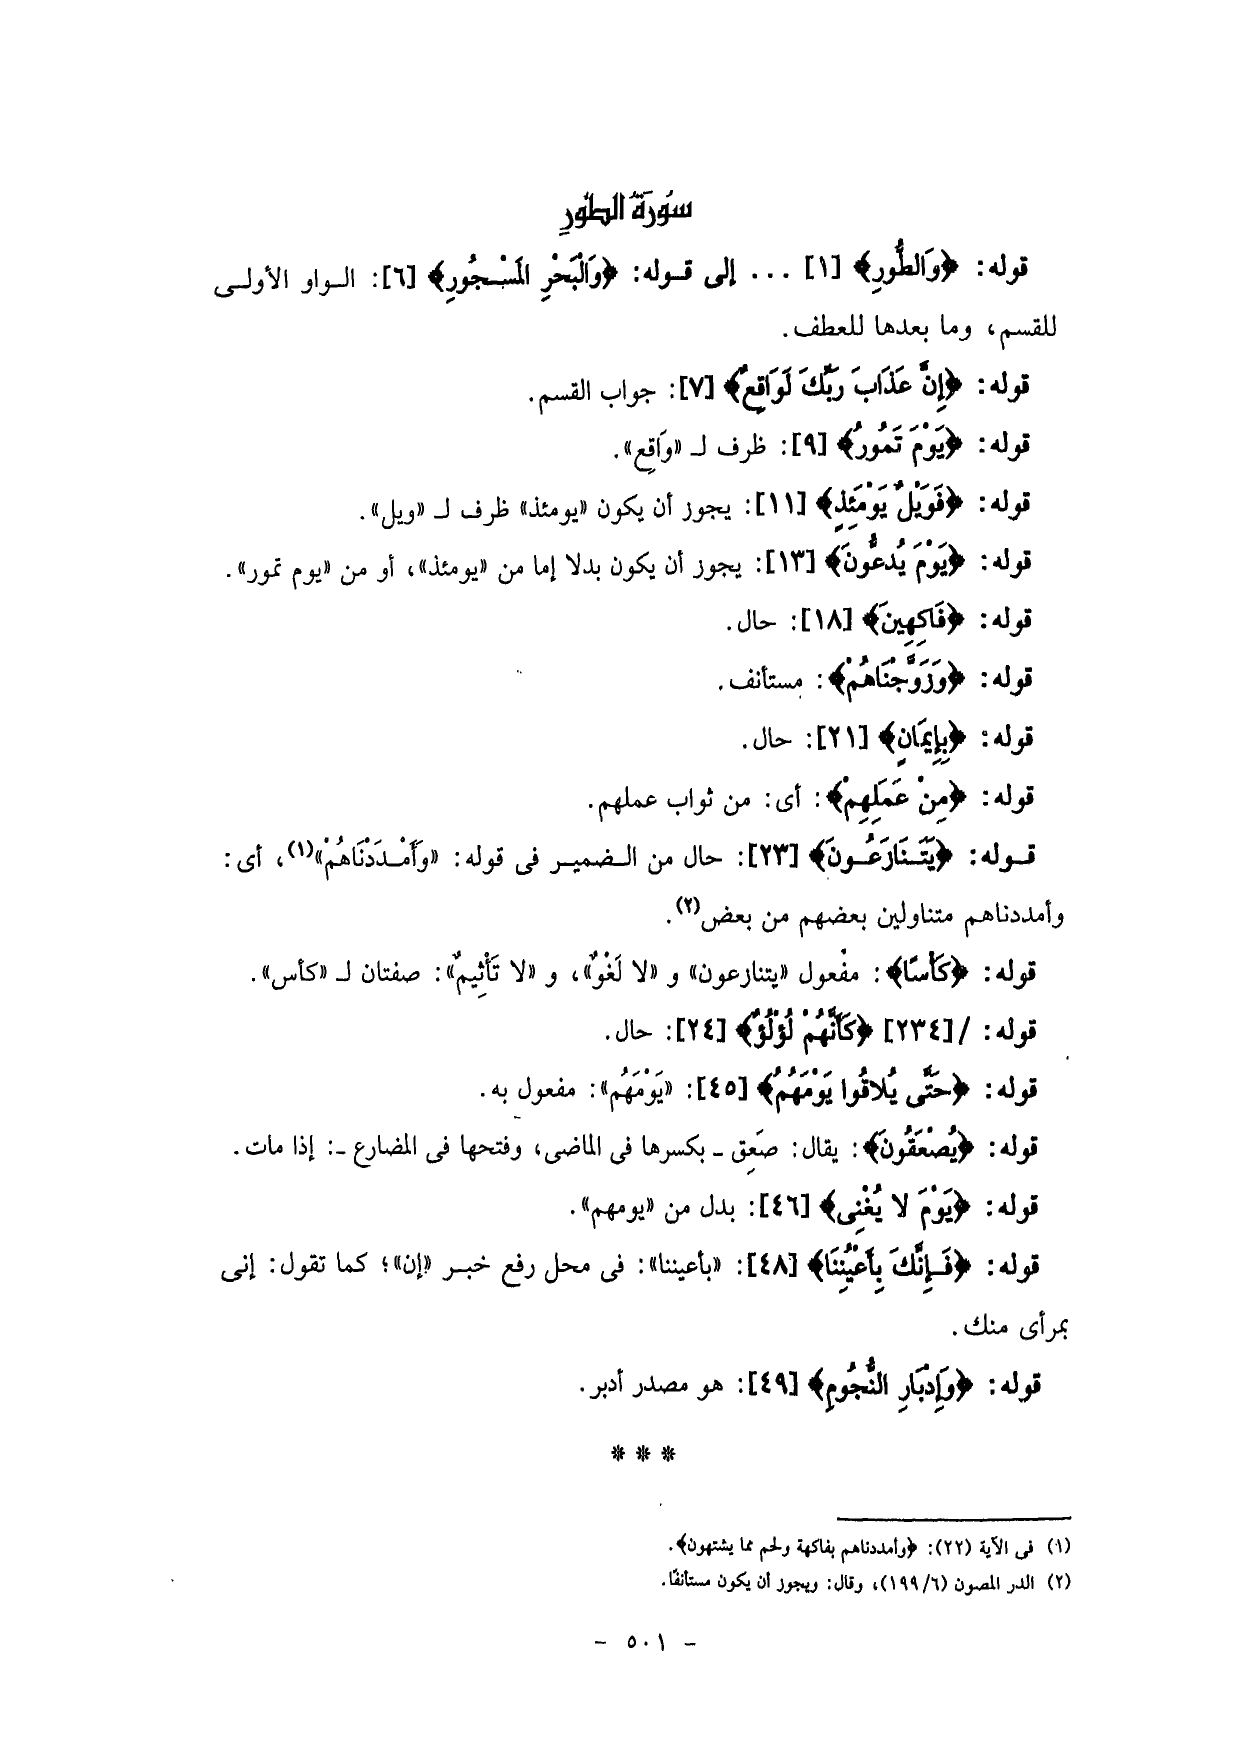 سُورَة الطُّورِ
قوله: ﴿وَالطُّورِ﴾ [١] ... إلى قـوله: ﴿وَالْبَحْرِ الْمَسْـجُورِ﴾ [٦]: الـواو الأولـى
للقسم، وما بعدها للعطف.
قوله: ﴿إِنَّ عَذَابَ رَبِّكَ لَوَاقِعٌ﴾ [٧]: جواب القسم.
قوله: ﴿يَوْمَ تَمُورُ﴾ [٩]: ظرف لـ «وَاقِع».
قوله: ﴿فَوَيْلٌ يَوْمَئِذٍ﴾ [١١]: يجوز أن يكون «يومئذ» ظرف لـ «ويل».
قوله: ﴿يَوْمَ يُدعُّونَ﴾ [١٣]: يجوز أن يكون بدلا إما من «يومئذ»، أو من «يوم تمور».
قوله: ﴿فَاكِهِينَ﴾ [١٨]: حال.
قوله: ﴿وَزَوَّجْنَاهُمْ﴾: مستأنف.
قوله: ﴿بِإِيمَانٍ﴾ [٢١]: حال.
قوله: ﴿مِنْ عَمَلِهِمْ﴾: أى: من ثواب عملهم.
قـوله: ﴿يَتَـنَازَعُـونَ﴾ [٢٣]: حال من الـضميـر فى قوله: «وَأَمْـدَدْنَاهُمْ»(١)، أى:
وأمددناهم متناولين بعضهم من بعض(٢).
قوله: ﴿كَأْسًا﴾: مفْعول «يتنازعون» و «لا لَغْوٌ»، و «لا تَأْثِيمٌ»: صفتان لـ «كأس».
قوله: /[٢٣٤] ﴿كَأَنَّهُمْ لُؤْلُؤٌ﴾ [٢٤]: حال.
قوله: ﴿حَتَّى يُلاقُوا يَوْمَهُمُ﴾ [٤٥]: «يَوْمَهُم»: مفعول به.
قوله: ﴿يُصْعَقُونَ﴾: يقال: صَعِق ـ بكسرها فى الماضى، وفتحها فى المضارع ـ: إذا مات.
قوله: ﴿يَوْمَ لا يُغْنِى﴾ [٤٦]: بدل من «يومهم».
قوله: ﴿فَـإِنَّكَ بِأَعْيُنِنَا﴾ [٤٨]: «بأعيننا»: فى محل رفع خبـر «إن»؛ كما تقول: إنى
بمرأى منك.
قوله: ﴿وَإِدْبَارِ النُّجُومِ﴾ [٤٩]: هو مصدر أدبر.
* * *
(١) فى الآية (٢٢): ﴿وأمددناهم بفاكهة ولحم مما يشتهون﴾.
(٢) الدر المصون (٦/ ١٩٩)، وقال: ويجوز أن يكون مستأنفًا.
- ٥٠١ -